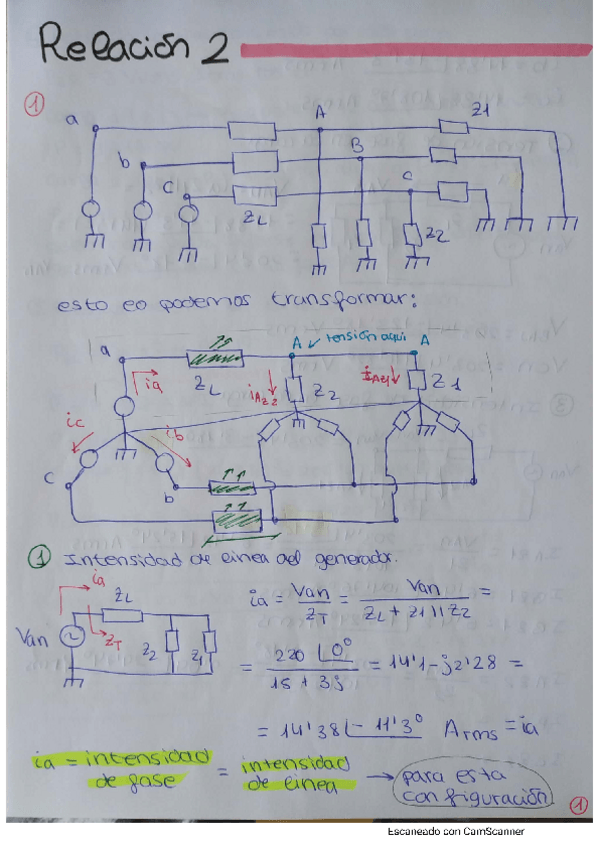 Relación 2
1
a
A
Z1
b
B
C
C
ZL
Z2
esto lo podemos transformar:
a
A ✓ tensión aquí A
ZL
ia
iAZ2
Z2
IAZ1
Z1
ic
ib
C
b
1 Intensidad de linea del generador.
ia
ZL
Van
ZT
Z2
Z1
ia = Van/ZT = Van/(ZL + Z1||Z2) =
= 220∠0°/(15+3j) = 14'1 - j2'28 =
= 14'38∠-11'3° Arms = ia
ia = intensidad de fase = intensidad de linea → para esta configuración
1
Escaneado con CamScanner